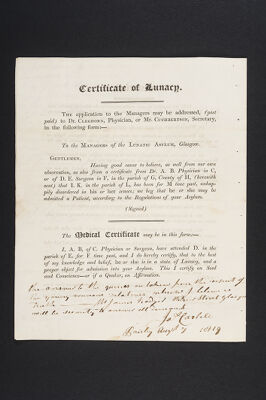 Certificate of Lunacy.
The application to the Managers may be addressed, (post
paid) to Dr. Cleghorn, Physician, or Mr. Cuthbertson, Secretary,
in the following form:—
To the Managers of the Lunatic Asylum, Glasgow.
Gentlemen,
Having good cause to believe, as well from our own
observation, as also from a certificate from Dr. A. B. Physician in C,
or of D. E. Surgeon in F, in the parish of G, County of H, (herewith
sent) that I. K. in the parish of L, has been for M time past, unhap-
pily disordered in his or her senses; we beg that he or she may be
admitted a Patient, according to the Regulations of your Asylum.
(Signed)
The Medical Certificate may be in this form:—
I, A. B, of C. Physician or Surgeon, have attended D. in the
parish of E, for F time past, and do hereby certify, that to the best
of my knowledge and belief, he or she is in a state of Lunacy, and a
proper object for admission into your Asylum. This I certify on Soul
and Conscience—or if a Quaker, on Affirmation.
the answers to the queries as taken from the report of
the young womans relatives whom I believe
James Street Glasgow
will be security to answer all
Paisley Augt 7 1819